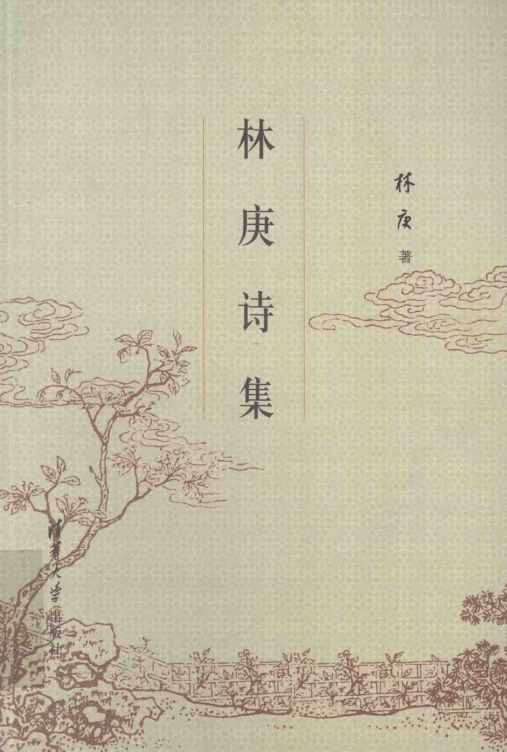 林庚诗集
林庚 著
清华大学出版社